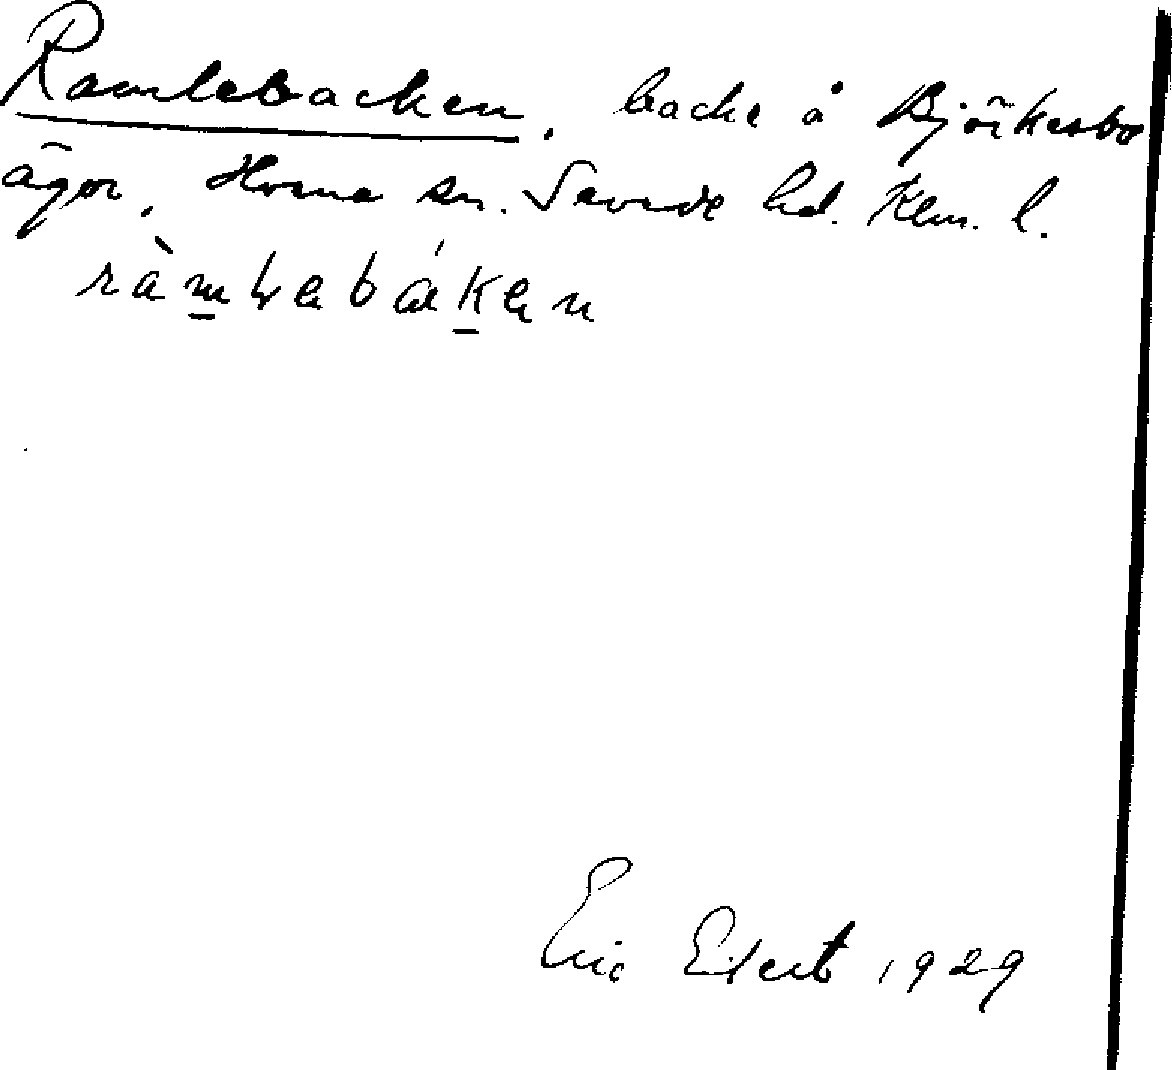 Ramlebacken, backe å Björkesbo
ägor, Horna sn. Sevede hd. Klm. l.
ràmlebáken
Eric Elert 1929